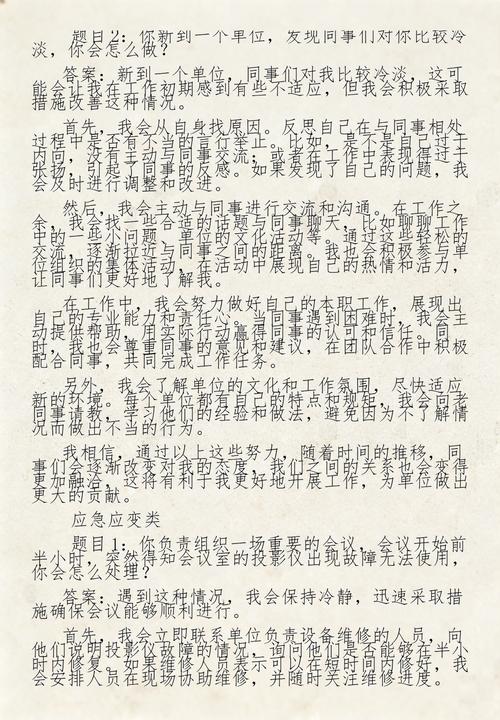 题目2：你新到一个单位，发现同事们对你比较冷
淡，你会怎么做？
答案：新到一个单位，同事们对我比较冷淡，这可
能会让我在工作初期感到有些不适应，但我会积极采取
措施改善这种情况。
首先，我会从自身找原因。反思自己在与同事相处
过程中是否有不当的言行举止。比如，是不是自己过于
内向，没有主动与同事交流；或者在工作中表现得过于
张扬，引起了同事的反感。如果发现了自己的问题，我
会及时进行调整和改进。
然后，我会主动与同事进行交流和沟通。在工作之
余，我会找一些合适的话题与同事聊天，比如聊聊工作
中的一些小问题、单位的文化活动等。通过这些轻松的
交流，逐渐拉近与同事之间的距离。我也会积极参与单
位组织的集体活动，在活动中展现自己的热情和活力，
让同事们更好地了解我。
在工作中，我会努力做好自己的本职工作，展现出
自己的专业能力和责任心。当同事遇到困难时，我会主
动提供帮助，用实际行动赢得同事的认可和信任。同
时，我也会尊重同事的意见和建议，在团队合作中积极
配合同事，共同完成工作任务。
另外，我会了解单位的文化和工作氛围，尽快适应
新的环境。每个单位都有自己的特点和规矩，我会向老
同事请教，学习他们的经验和做法，避免因为不了解情
况而做出不当的行为。
我相信，通过以上这些努力，随着时间的推移，同
事们会逐渐改变对我的态度，我们之间的关系也会变得
更加融洽，这将有利于我更好地开展工作，为单位做出
更大的贡献。
应急应变类
题目1：你负责组织一场重要的会议，会议开始前
半小时，突然得知会议室的投影仪出现故障无法使用，
你会怎么处理？
答案：遇到这种情况，我会保持冷静，迅速采取措
施确保会议能够顺利进行。
首先，我会立即联系单位负责设备维修的人员，向
他们说明投影仪故障的情况，询问他们是否能够在半小
时内修复。如果维修人员表示可以在短时间内修好，我
会安排人员在现场协助维修，并随时关注维修进度。